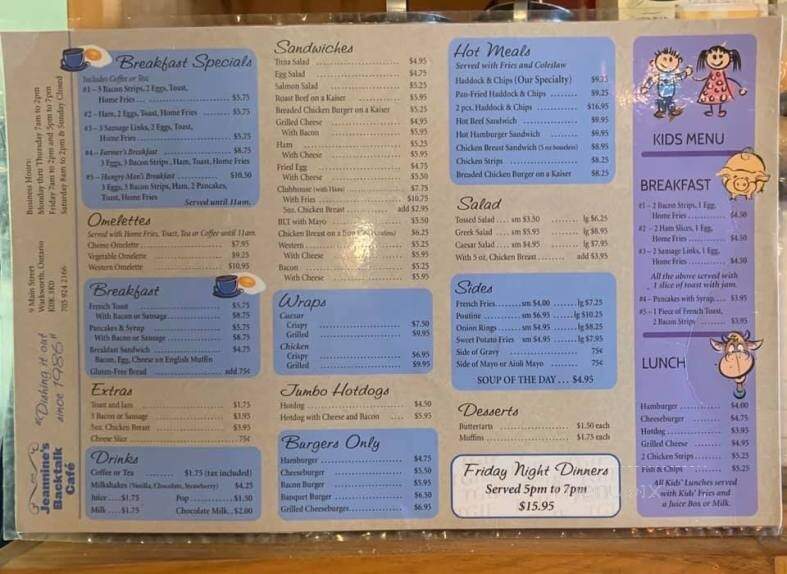 Business Hours:
Monday thru Thursday 7am to 2pm
Friday 7am to 2pm and 5pm to 7pm
Saturday 8am to 2pm & Sunday Closed
9 Main Street
Warkworth, Ontario
K0K 3K0
705 924 2166
"Dishing it out
since 1986"
Jeannine's
Backtalk
Café
Breakfast Specials
Includes Coffee or Tea
#1 – 3 Bacon Strips, 2 Eggs, Toast,
Home Fries ... $5.75
#2 – Ham, 2 Eggs, Toast, Home Fries ... $5.75
#3 – 3 Sausage Links, 2 Eggs, Toast,
Home Fries ... $5.75
#4 – Farmer's Breakfast ... $8.75
3 Eggs, 3 Bacon Strips, Ham, Toast, Home Fries
#5 – Hungry Man's Breakfast ... $10.50
3 Eggs, 3 Bacon Strips, Ham, 2 Pancakes,
Toast, Home Fries
Served until 11am.
Omelettes
Served with Home Fries, Toast, Tea or Coffee until 11am.
Cheese Omelette ... $7.95
Vegetable Omelette ... $9.25
Western Omelette ... $10.95
Breakfast
French Toast ... $5.75
With Bacon or Sausage ... $8.75
Pancakes & Syrup ... $5.75
With Bacon or Sausage ... $8.75
Breakfast Sandwich ... $4.75
Bacon, Egg, Cheese on English Muffin
Gluten-Free Bread ... add 75¢
Extras
Toast and Jam ... $1.75
3 Bacon or Sausage ... $3.95
5oz. Chicken Breast ... $3.95
Cheese Slice ... 75¢
Drinks
Coffee or Tea ... $1.75 (tax included)
Milkshakes (Vanilla, Chocolate, Strawberry) $4.25
Juice ... $1.75 Pop ... $1.50
Milk ... $1.75 Chocolate Milk .. $2.00
Sandwiches
Tuna Salad ... $4.95
Egg Salad ... $4.75
Salmon Salad ... $5.25
Roast Beef on a Kaiser ... $5.95
Breaded Chicken Burger on a Kaiser ... $5.25
Grilled Cheese ... $4.95
With Bacon ... $5.95
Ham ... $5.25
With Cheese ... $5.95
Fried Egg ... $4.75
With Cheese ... $5.50
Clubhouse (with Ham) ... $7.75
With Fries ... $10.75
5oz. Chicken Breast ... add $2.95
BLT with Mayo ... $5.50
Chicken Breast on a Bun $6.25
Western ... $5.25
With Cheese ... $5.95
Bacon ... $5.25
With Cheese ... $5.95
Wraps
Caesar
Crispy ... $7.50
Grilled ... $9.95
Chicken
Crispy ... $6.95
Grilled ... $9.95
Jumbo Hotdogs
Hotdog ... $4.50
Hotdog with Cheese and Bacon ... $5.95
Burgers Only
Hamburger ... $4.75
Cheeseburger ... $5.50
Bacon Burger ... $5.95
Banquet Burger ... $6.50
Grilled Cheeseburger ... $6.95
Hot Meals
Served with Fries and Coleslaw
Haddock & Chips (Our Specialty) $9.25
Pan-Fried Haddock & Chips ... $9.25
2 pcs. Haddock & Chips ... $16.95
Hot Beef Sandwich ... $9.95
Hot Hamburger Sandwich ... $9.95
Chicken Breast Sandwich (5 oz boneless) $9.95
Chicken Strips ... $8.25
Breaded Chicken Burger on a Kaiser $8.25
Salad
Tossed Salad ... sm $3.50 ... lg $6.25
Greek Salad ... sm $5.95 ... lg $8.95
Caesar Salad ... sm $4.95 ... lg $7.95
With 5 oz. Chicken Breast ... add $3.95
Sides
French Fries ... sm $4.00 ... lg $7.25
Poutine ... sm $6.95 ... lg $10.25
Onion Rings ... sm $4.95 ... lg $8.25
Sweet Potato Fries sm $4.95 ... lg $7.95
Side of Gravy ... 75¢
Side of Mayo or Aioli Mayo ... 75¢
SOUP OF THE DAY ... $4.95
Desserts
Buttertarts ... $1.50 each
Muffins ... $1.75 each
Friday Night Dinners
Served 5pm to 7pm
$15.95
KIDS MENU
BREAKFAST
#1 – 2 Bacon Strips, 1 Egg,
Home Fries ... $4.50
#2 – 2 Ham Slices, 1 Egg,
Home Fries ... $4.50
#3 – 2 Sausage Links, 1 Egg,
Home Fries ... $4.50
All the above served with
1 slice of toast with jam.
#4 – Pancakes with Syrup ... $3.95
#5 – 1 Piece of French Toast,
2 Bacon Strips ... $3.95
LUNCH
Hamburger ... $4.00
Cheeseburger ... $4.75
Hotdog ... $3.95
Grilled Cheese ... $4.95
2 Chicken Strips ... $5.25
Fish & Chips ... $5.25
All Kids' Lunches served
with Kids' Fries and
a Juice Box or Milk.